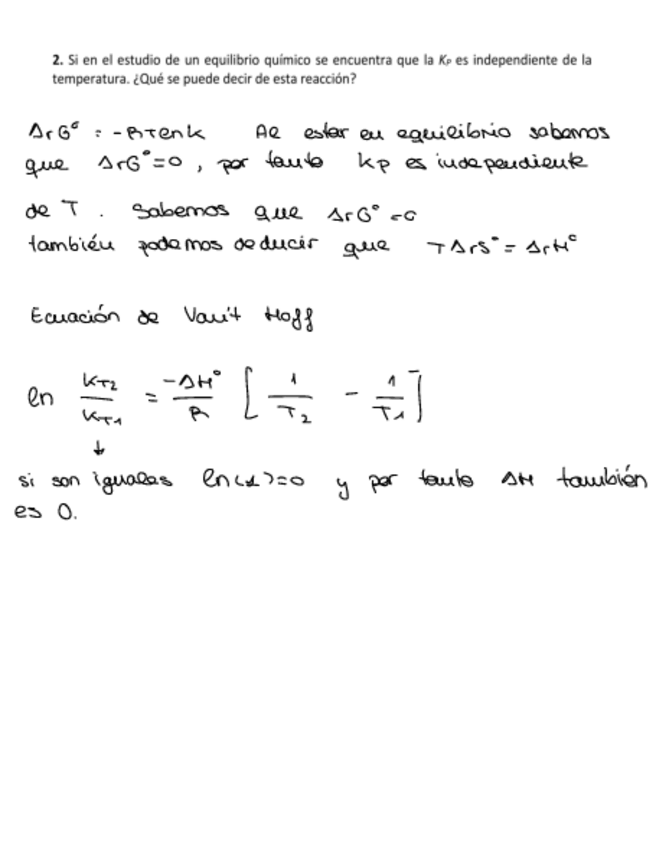 2. Si en el estudio de un equilibrio químico se encuentra que la Kp es independiente de la
temperatura. ¿Qué se puede decir de esta reacción?
ΔrG° = -RTlnk Al estar en equilibrio sabemos
que ΔrG°=0, por tanto kp es independiente
de T. Sabemos que ΔrG°=0
también podemos deducir que TΔrS°=ΔrH°
Ecuación de Van't Hoff
ln KT2/KT1 = -ΔH°/R [1/T2 - 1/T1]
↓
si son iguales ln(1)=0 y por tanto ΔH también
es 0.